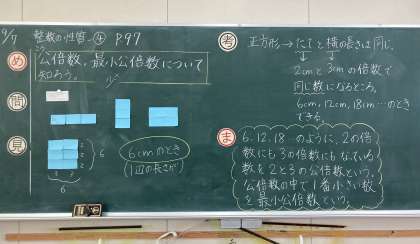 9/7 整数の性質④ P97
め
公倍数、最小公倍数について
知ろう。
問
見
6
6
6cmのとき
(1辺の長さが)
考
正方形→たてと横の長さは同じ。
2cmと3cmの倍数で
同じ数になるところ。
6cm, 12cm, 18cm…のとき
できる。
ま
6, 12, 18…のように、2の倍
数にも3の倍数にもなっている
数を2と3の公倍数という。
公倍数の中で1番小さい数
を最小公倍数という。